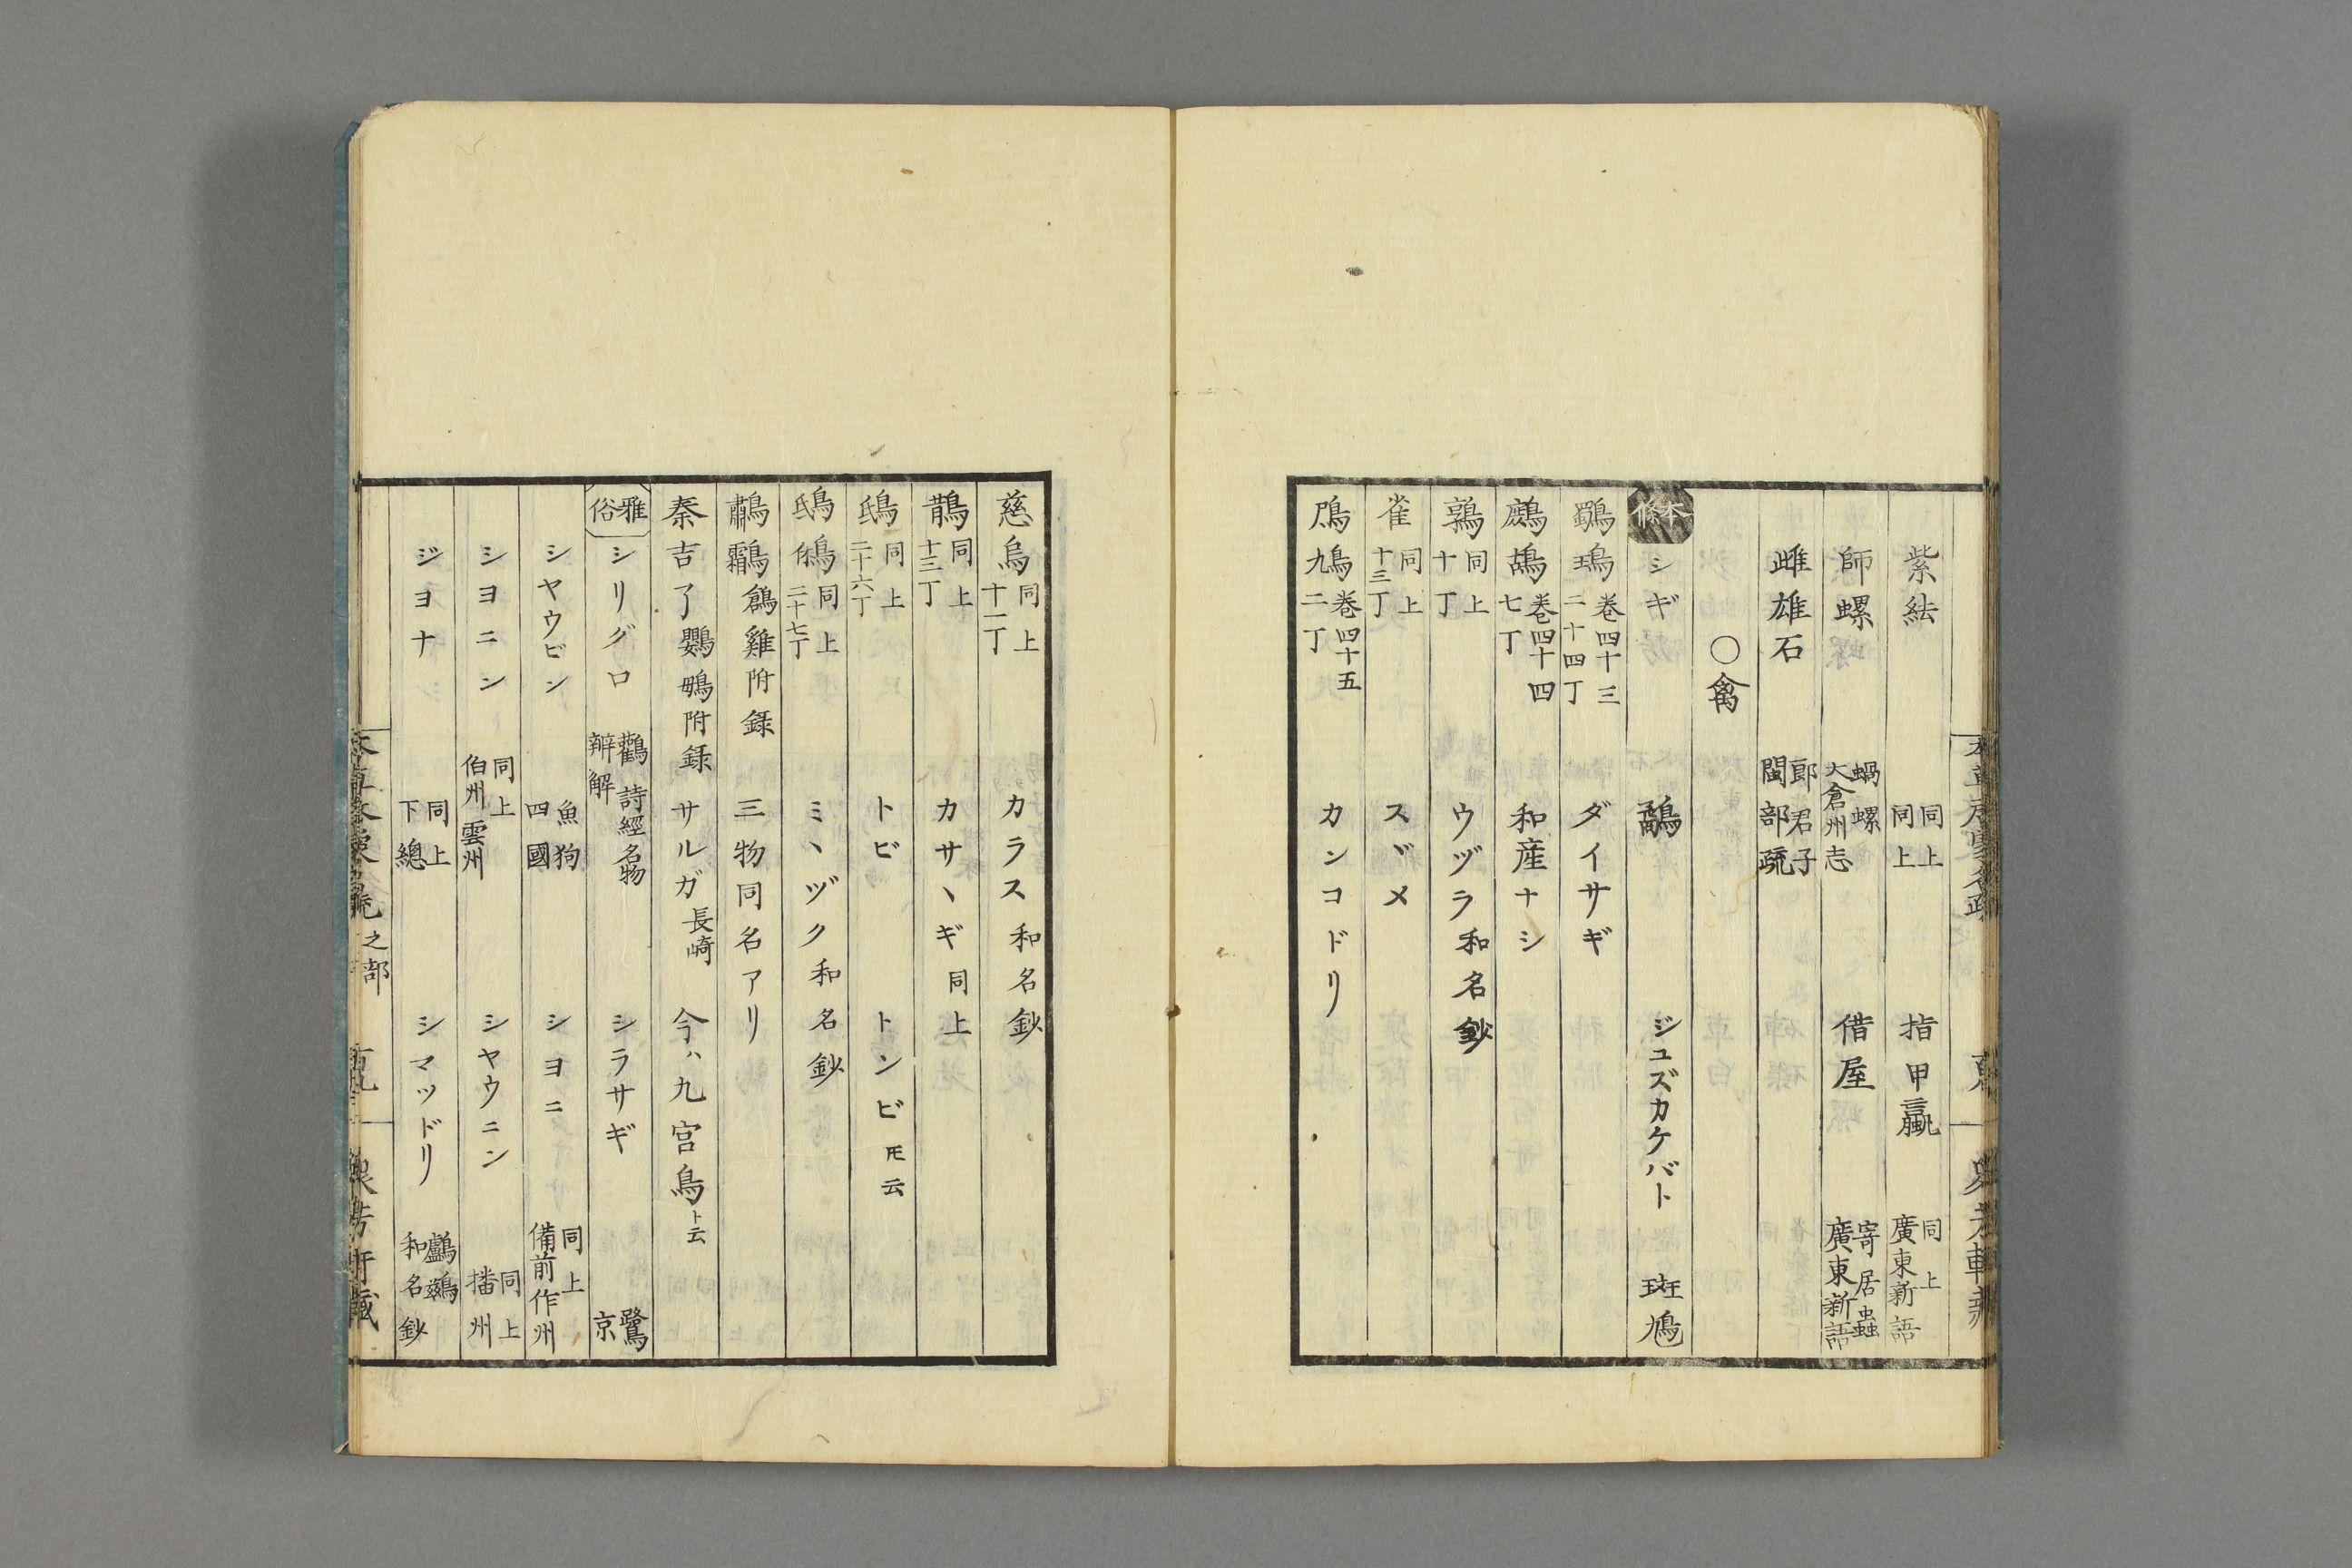 紫紶 同上 同上 指甲蠃 同上 廣東新語
師螺 蝸螺 大倉州志 借屋 寄居蟲 廣東新語
雌雄石 郎君子 閩部疏
〇禽
本條 シギ 鷸 ジユズカケバト 斑鳩
鸀鳿 巻四十三 二十四丁 ダイサギ
鷓鴣 巻四十四 七丁 和産ナシ
鶉 同上 十丁 ウヅラ 和名鈔
雀 同上 十三丁 スヾメ
鳲鳩 巻四十五 二丁 カンコドリ
慈烏 同上 十一丁 カラス 和名鈔
鵲 同上 十三丁 カサヽギ 同上
鴟 同上 二十六丁 トビ トンビ 㐂云
鴟鵂 同上 二十七丁 ミヽヅク 和名鈔
鷫鸘 鶬雞附録 三物同名アリ
秦吉了 鸚䳇附録 サルガ 長崎 今ハ九宮鳥ト云
雅俗 シリグロ 鸛 詩經名物辨解 シラサギ 鷺 京
シヤウビン 魚狗 四國 シヨニ 同上 備前作州
シヨニン 同上 伯州雲州 シヤウニン 同上 播州
ジヨナ 同上 下總 シマツドリ 鸕鷀 和名鈔
之部